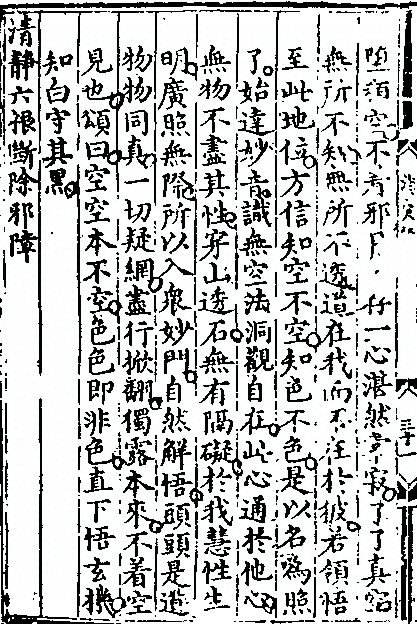 墮頑空不着邪
一心湛然寂了了真空
無所不知無所不透道在我而不在於彼若領悟
至此地位方信知空不空知色不色是以名爲照
了始達妙音識無空法洞觀自在此心通於他心
無物不盡其性穿山透石無有隔礙於我慧性生
明廣照無際所以入衆妙門自然解悟頭頭是道
物物同真一切疑網盡行掀翻獨露本來不着空
見也頌曰空空本不空色色即非色直下悟玄機
知白守其黑
清靜六根斷除邪障